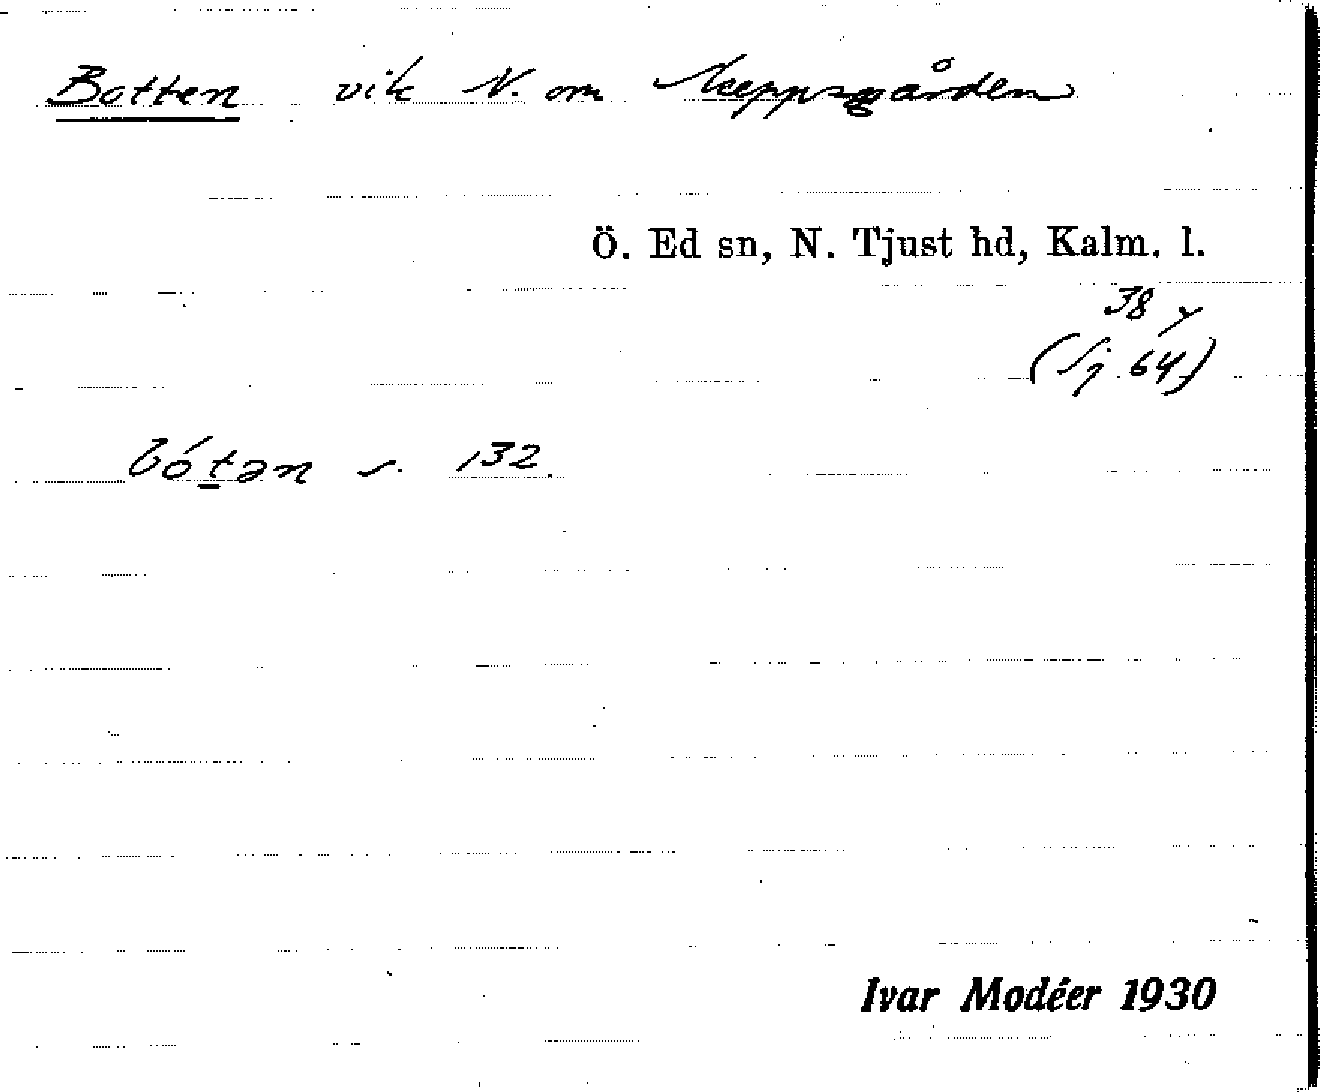 Botten vik N. om Skeppsgården
Ö. Ed sn, N. Tjust hd, Kalm. l.
38 y
(Sj. 64)
bótən s. 132.
Ivar Modéer 1930